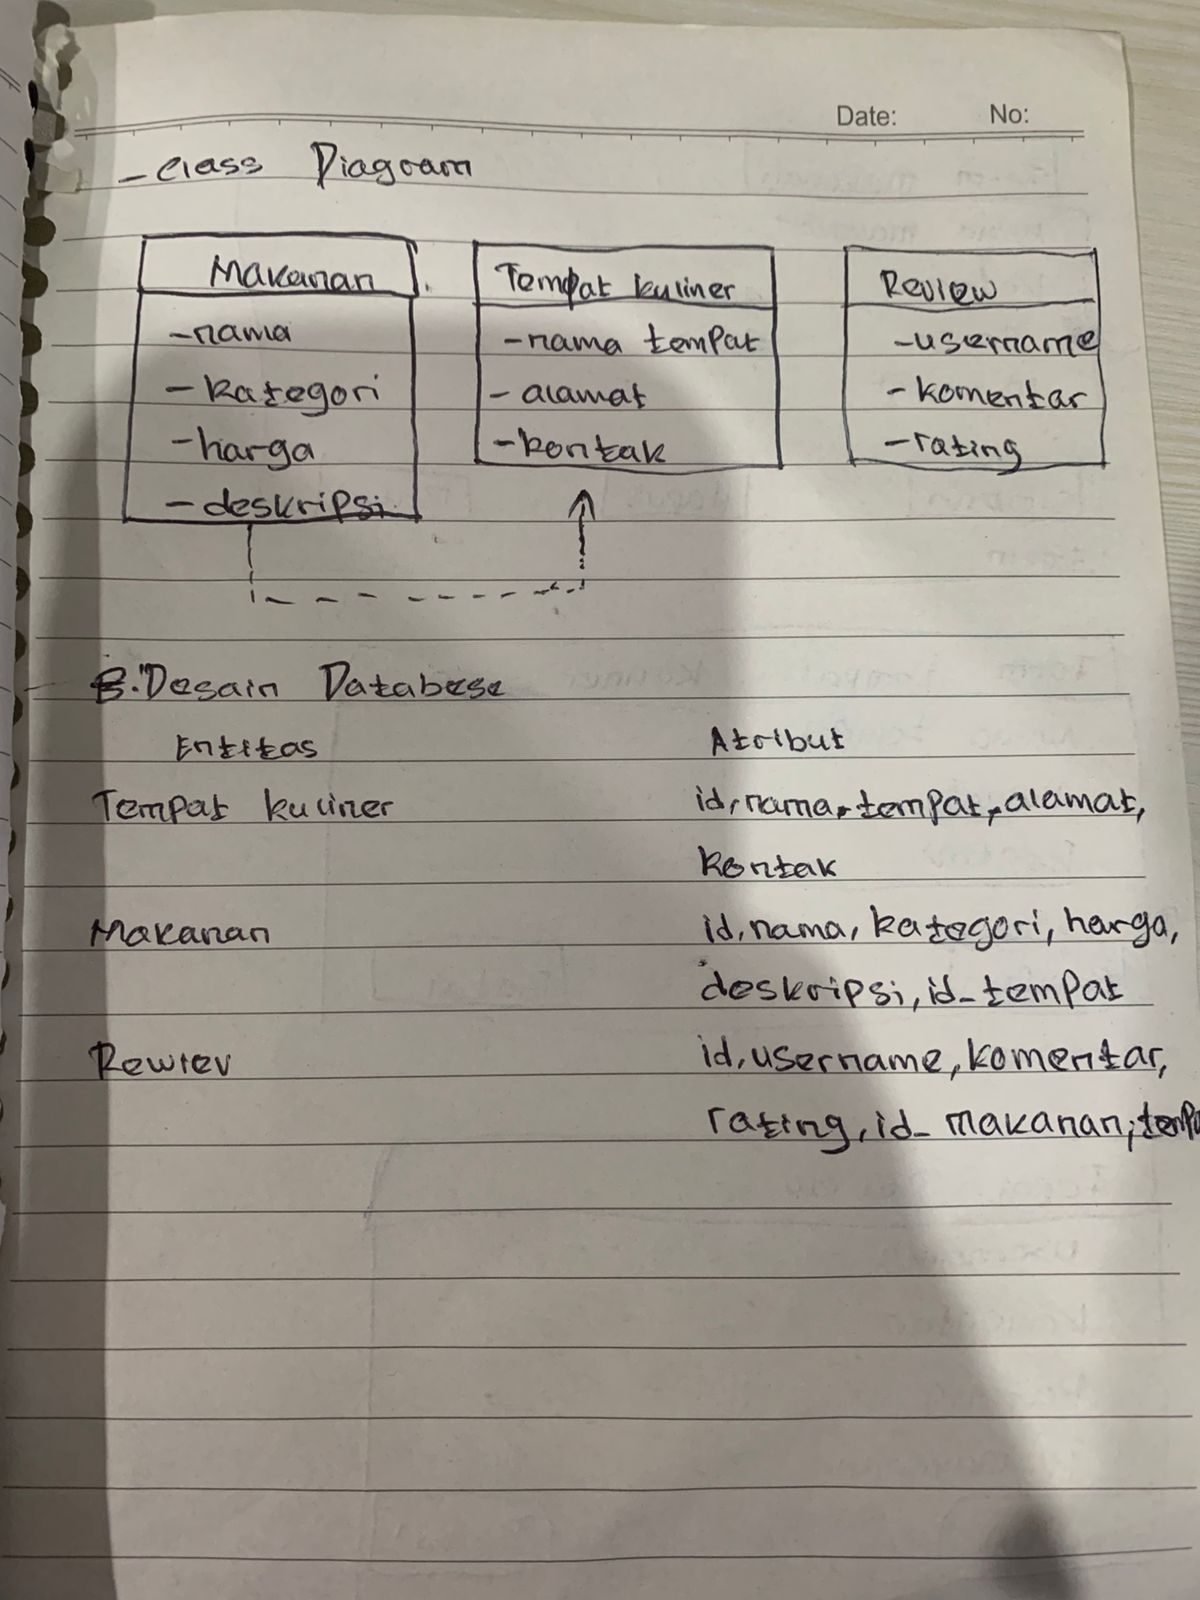 Date: No:
- Class Diagram
Makanan
- nama
- kategori
- harga
- deskripsi
Tempat kuliner
- nama tempat
- alamat
- kontak
Review
- username
- komentar
- rating
B. Desain Database
Entitas Atribut
Tempat kuliner id, nama, tempat, alamat,
kontak
Makanan id, nama, kategori, harga,
deskripsi, id_tempat
Rewiev id, username, komentar,
rating, id_makanan,